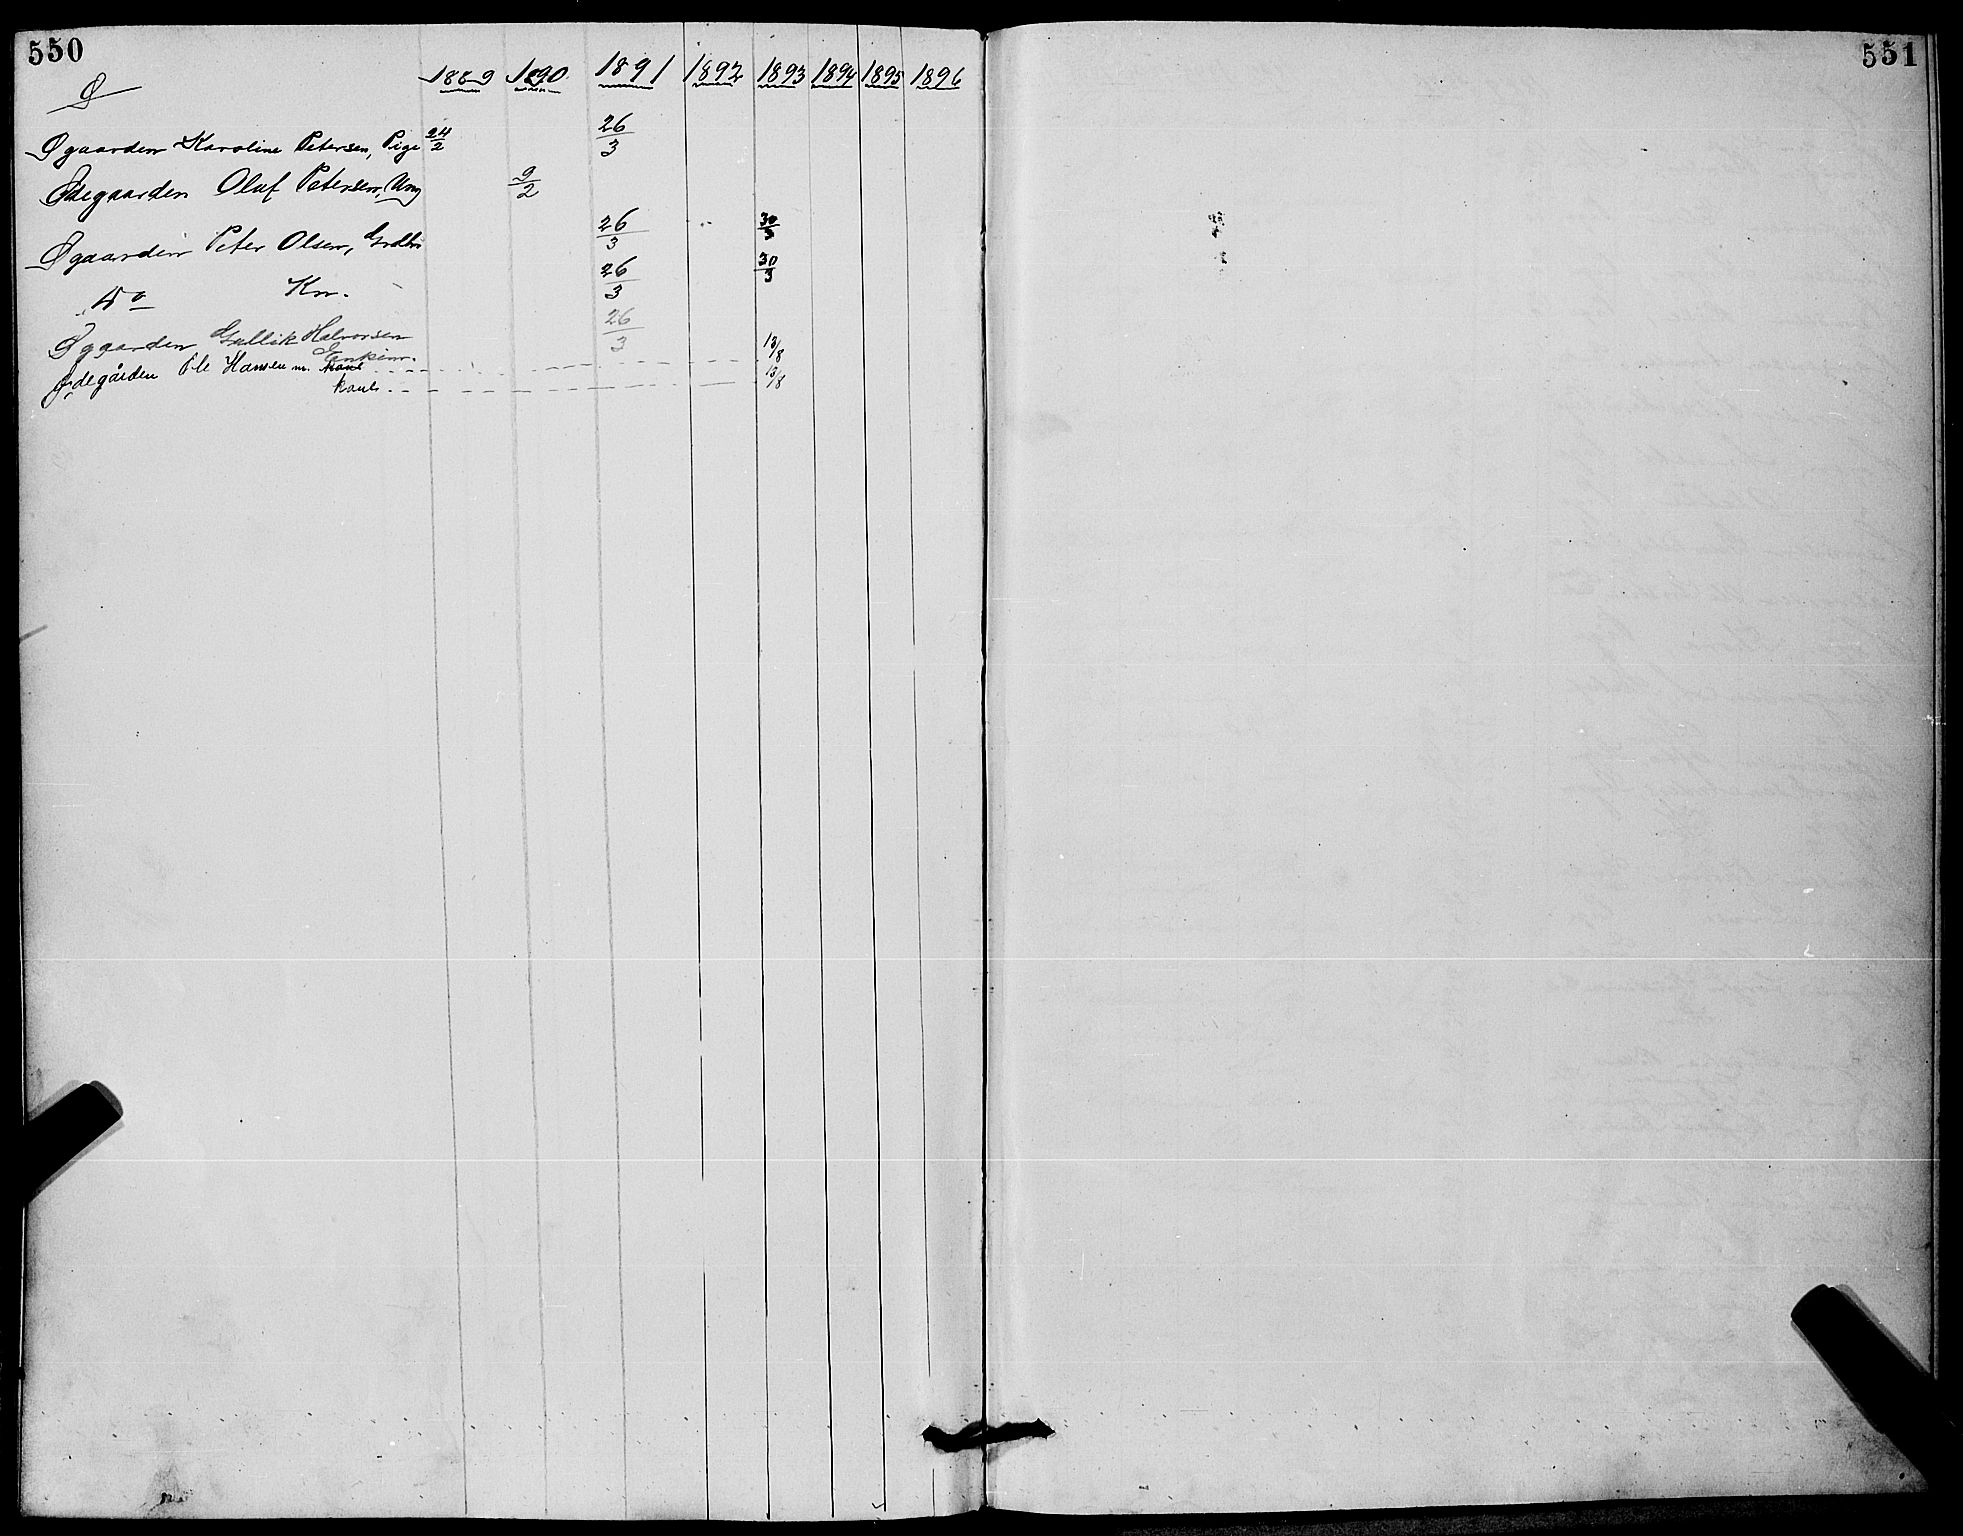 550
551
Ø 1889 1890 1891 1892 1893 1894 1895 1896
Øgaarden Karoline Petersen, Pige 24/2 26/3
Ødegaarden Oluf Petersen, Ung 9/2
Øgaarden Peter Olsen, 26/3 30/3
Do Kn. 26/3 30/3
Øgaarden Gullik Halvorsen 26/3
Enkem.
Ødegården Ole Hansen m. 13/8
kone 13/8